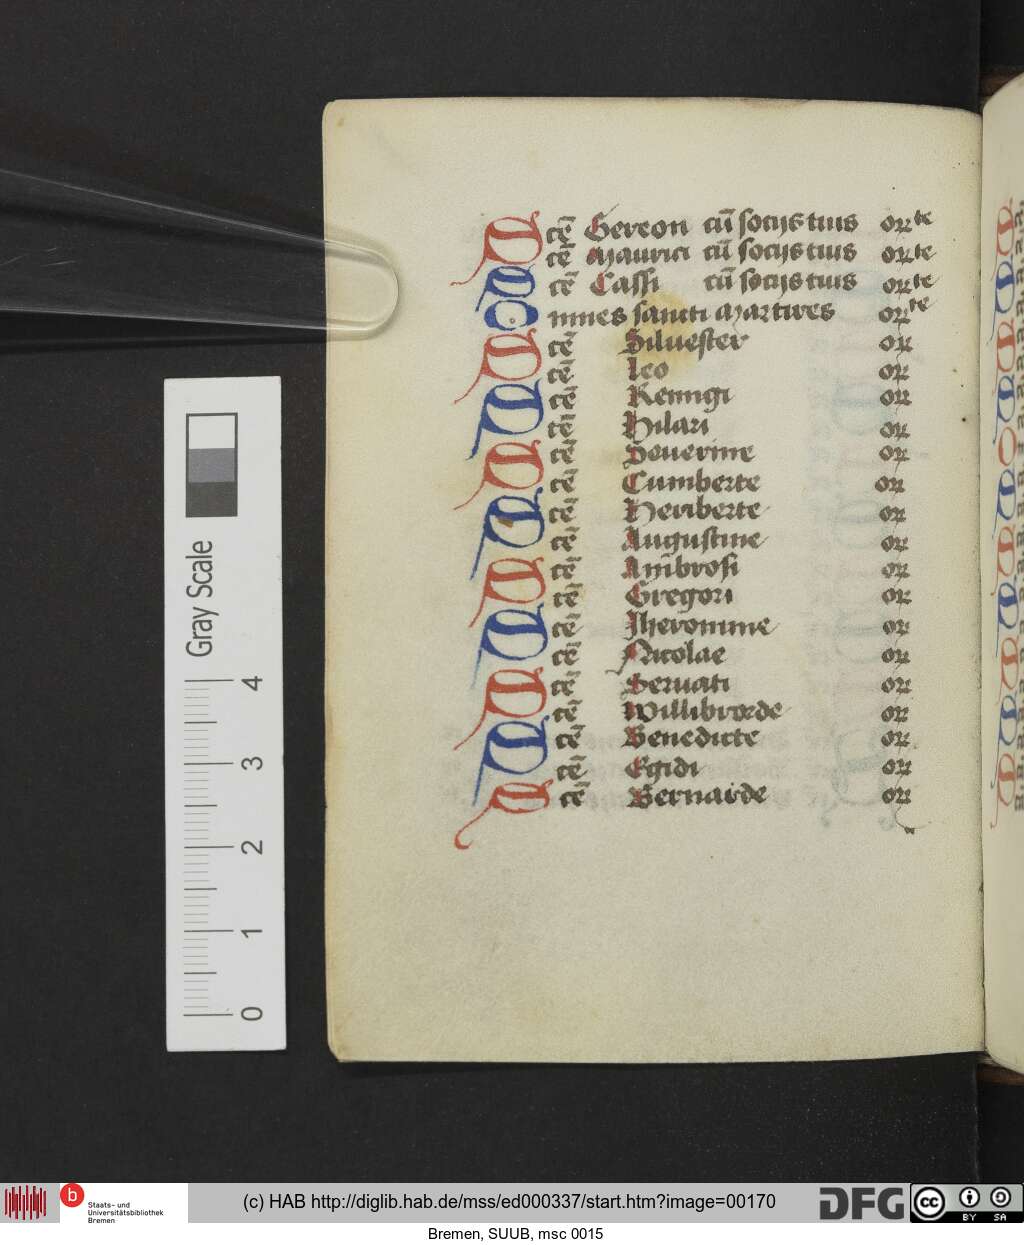 Scē Gereon cū socijs tuis orꝛte
Scē Maurici cū socijs tuis orꝛte
Scē Cassi cū socijs tuis orꝛte
Omnes sancti Martires orꝛte
Scē Siluester or
Scē Leo or
Scē Remigi or
Scē Hilari or
Scē Seuerine or
Scē Cumberte or
Scē Heriberte or
Scē Augustine or
Scē Ambrosi or
Scē Gregori or
Scē Iheronime or
Scē Nicolae or
Scē Seruati or
Scē Willibrorde or
Scē Benedicte or
Scē Egidi or
Scē Bernarde or
Gray Scale
0 1 2 3 4
b Staats- und
Universitätsbibliothek
Bremen
(c) HAB http://diglib.hab.de/mss/ed000337/start.htm?image=00170
DFG
cc BY SA
Bremen, SUUB, msc 0015